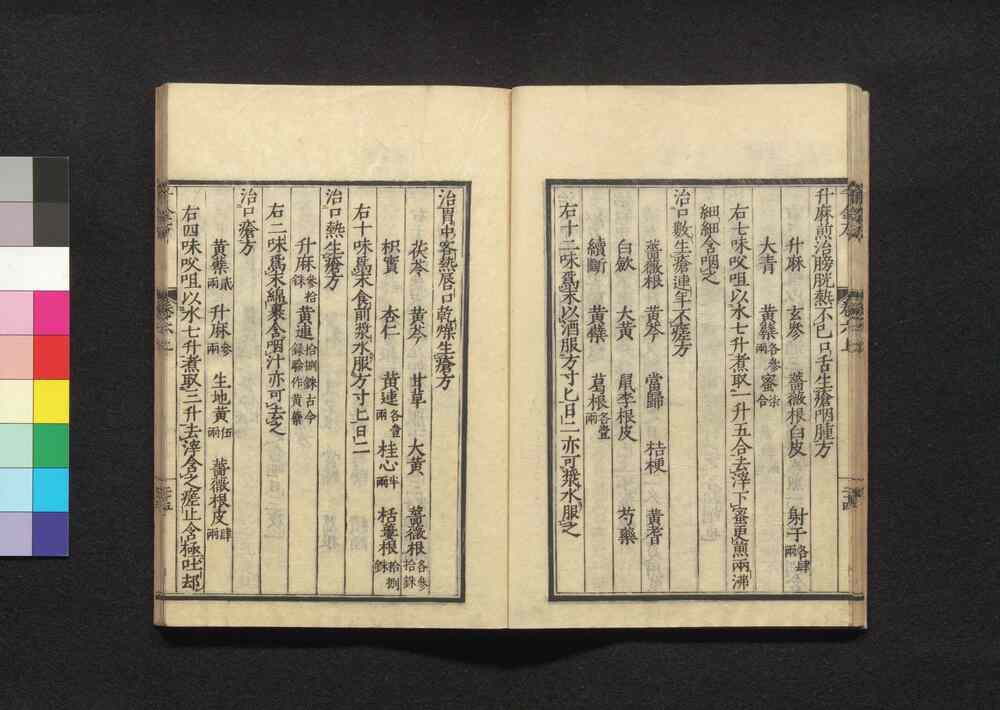 升麻煎治膀胱熱不已口舌生瘡咽腫方
升麻 玄參 薔薇根白皮 射干各肆兩
大青 黃蘗各參兩 蜜柒合
右七味㕮咀以水七升煮取一升五合去滓下蜜更煎兩沸
細細含咽之
治口數生瘡連年不瘥方
薔薇根 黃芩 當歸 桔梗 黃耆
白斂 大黃 鼠李根皮 芍藥
續斷 黃蘗 葛根各壹兩
右十二味爲末以酒服方寸匕日二亦可漿水服之
治胃中客熱唇口乾燥生瘡方
茯苓 黃芩 甘草 大黃 薔薇根各參拾銖
枳實 杏仁 黃連各壹兩 桂心半兩 栝蔞根拾捌銖
右十味爲末食前漿水服方寸匕日二
治口熱生瘡方
升麻參拾銖 黃連拾捌銖古今錄驗作黃蘗
右二味爲末緜裹含咽汁亦可去之
治口瘡方
黃蘗貳兩 升麻參兩 生地黃伍兩 薔薇根皮肆兩
右四味㕮咀以水七升煮取三升去滓含之瘥止含極吐却